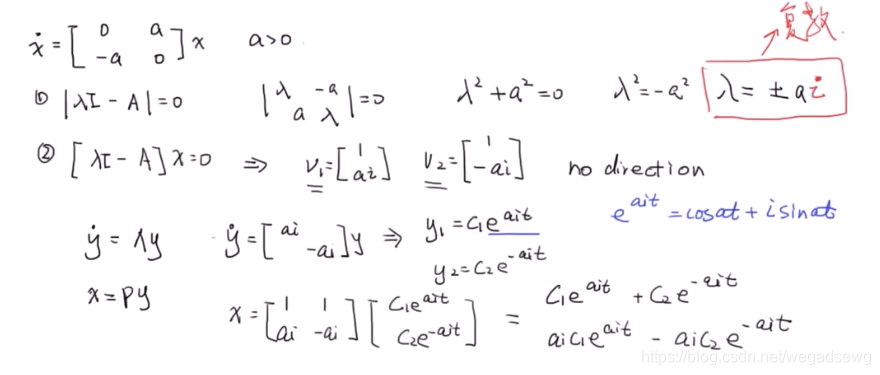 复数
ẋ = [0 a; -a 0] x a>0
① |λI - A|=0 |λ -a; a λ|=0 λ²+a²=0 λ²=-a² λ= ±ai
② [λI - A]x=0 ⇒ v₁=[1; ai] v₂=[1; -ai] no direction
e^{ait} =cosat+isinat
ẏ = Λy ẏ=[ai; -ai]y ⇒ y₁=c₁e^{ait}
y₂=c₂e^{-ait}
x=Py
x=[1 1; ai -ai][c₁e^{ait}; c₂e^{-ait}] = c₁e^{ait} +c₂e^{-ait}
aic₁e^{ait} - aic₂e^{-ait}
https://blog.csdn.net/wegadsewg